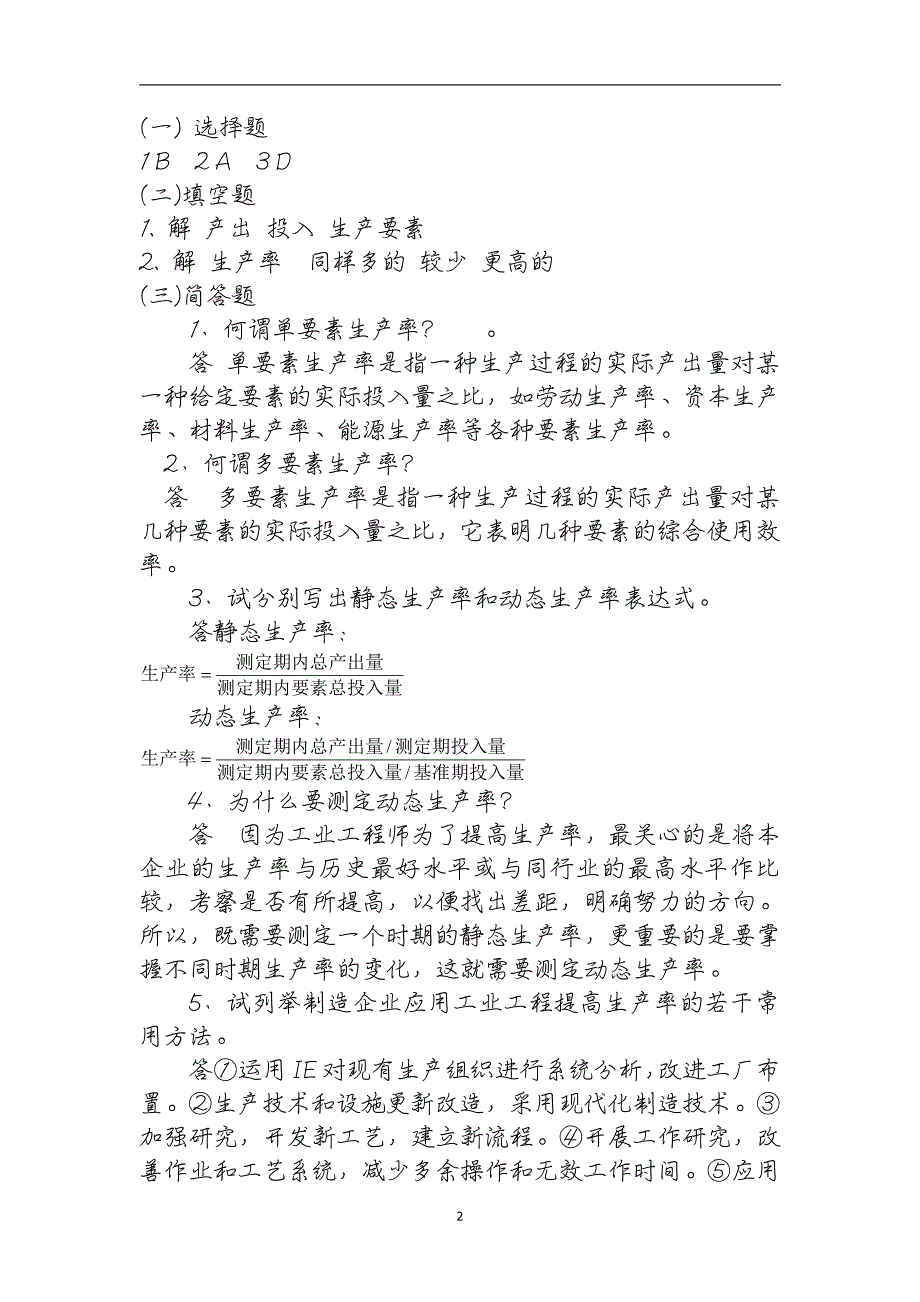 (一) 选择题
1B 2A 3D
(二)填空题
1、解 产出 投入 生产要素
2、解 生产率 同样多的 较少 更高的
(三)简答题
1、何谓单要素生产率? 。
答 单要素生产率是指一种生产过程的实际产出量对某
一种给定要素的实际投入量之比，如劳动生产率、资本生产
率、材料生产率、能源生产率等各种要素生产率。
2、何谓多要素生产率?
答 多要素生产率是指一种生产过程的实际产出量对某
几种要素的实际投入量之比，它表明几种要素的综合使用效
率。
3、试分别写出静态生产率和动态生产率表达式。
答静态生产率：
生产率=测定期内总产出量
测定期内要素总投入量
动态生产率：
生产率=测定期内总产出量/测定期投入量
测定期内要素总投入量/基准期投入量
4、为什么要测定动态生产率?
答 因为工业工程师为了提高生产率，最关心的是将本
企业的生产率与历史最好水平或与同行业的最高水平作比
较，考察是否有所提高，以便找出差距，明确努力的方向。
所以，既需要测定一个时期的静态生产率，更重要的是要掌
握不同时期生产率的变化，这就需要测定动态生产率。
5、试列举制造企业应用工业工程提高生产率的若干常
用方法。
答①运用IE对现有生产组织进行系统分析，改进工厂布
置。②生产技术和设施更新改造，采用现代化制造技术。③
加强研究，开发新工艺，建立新流程。④开展工作研究，改
善作业和工艺系统，减少多余操作和无效工作时间。⑤应用
2